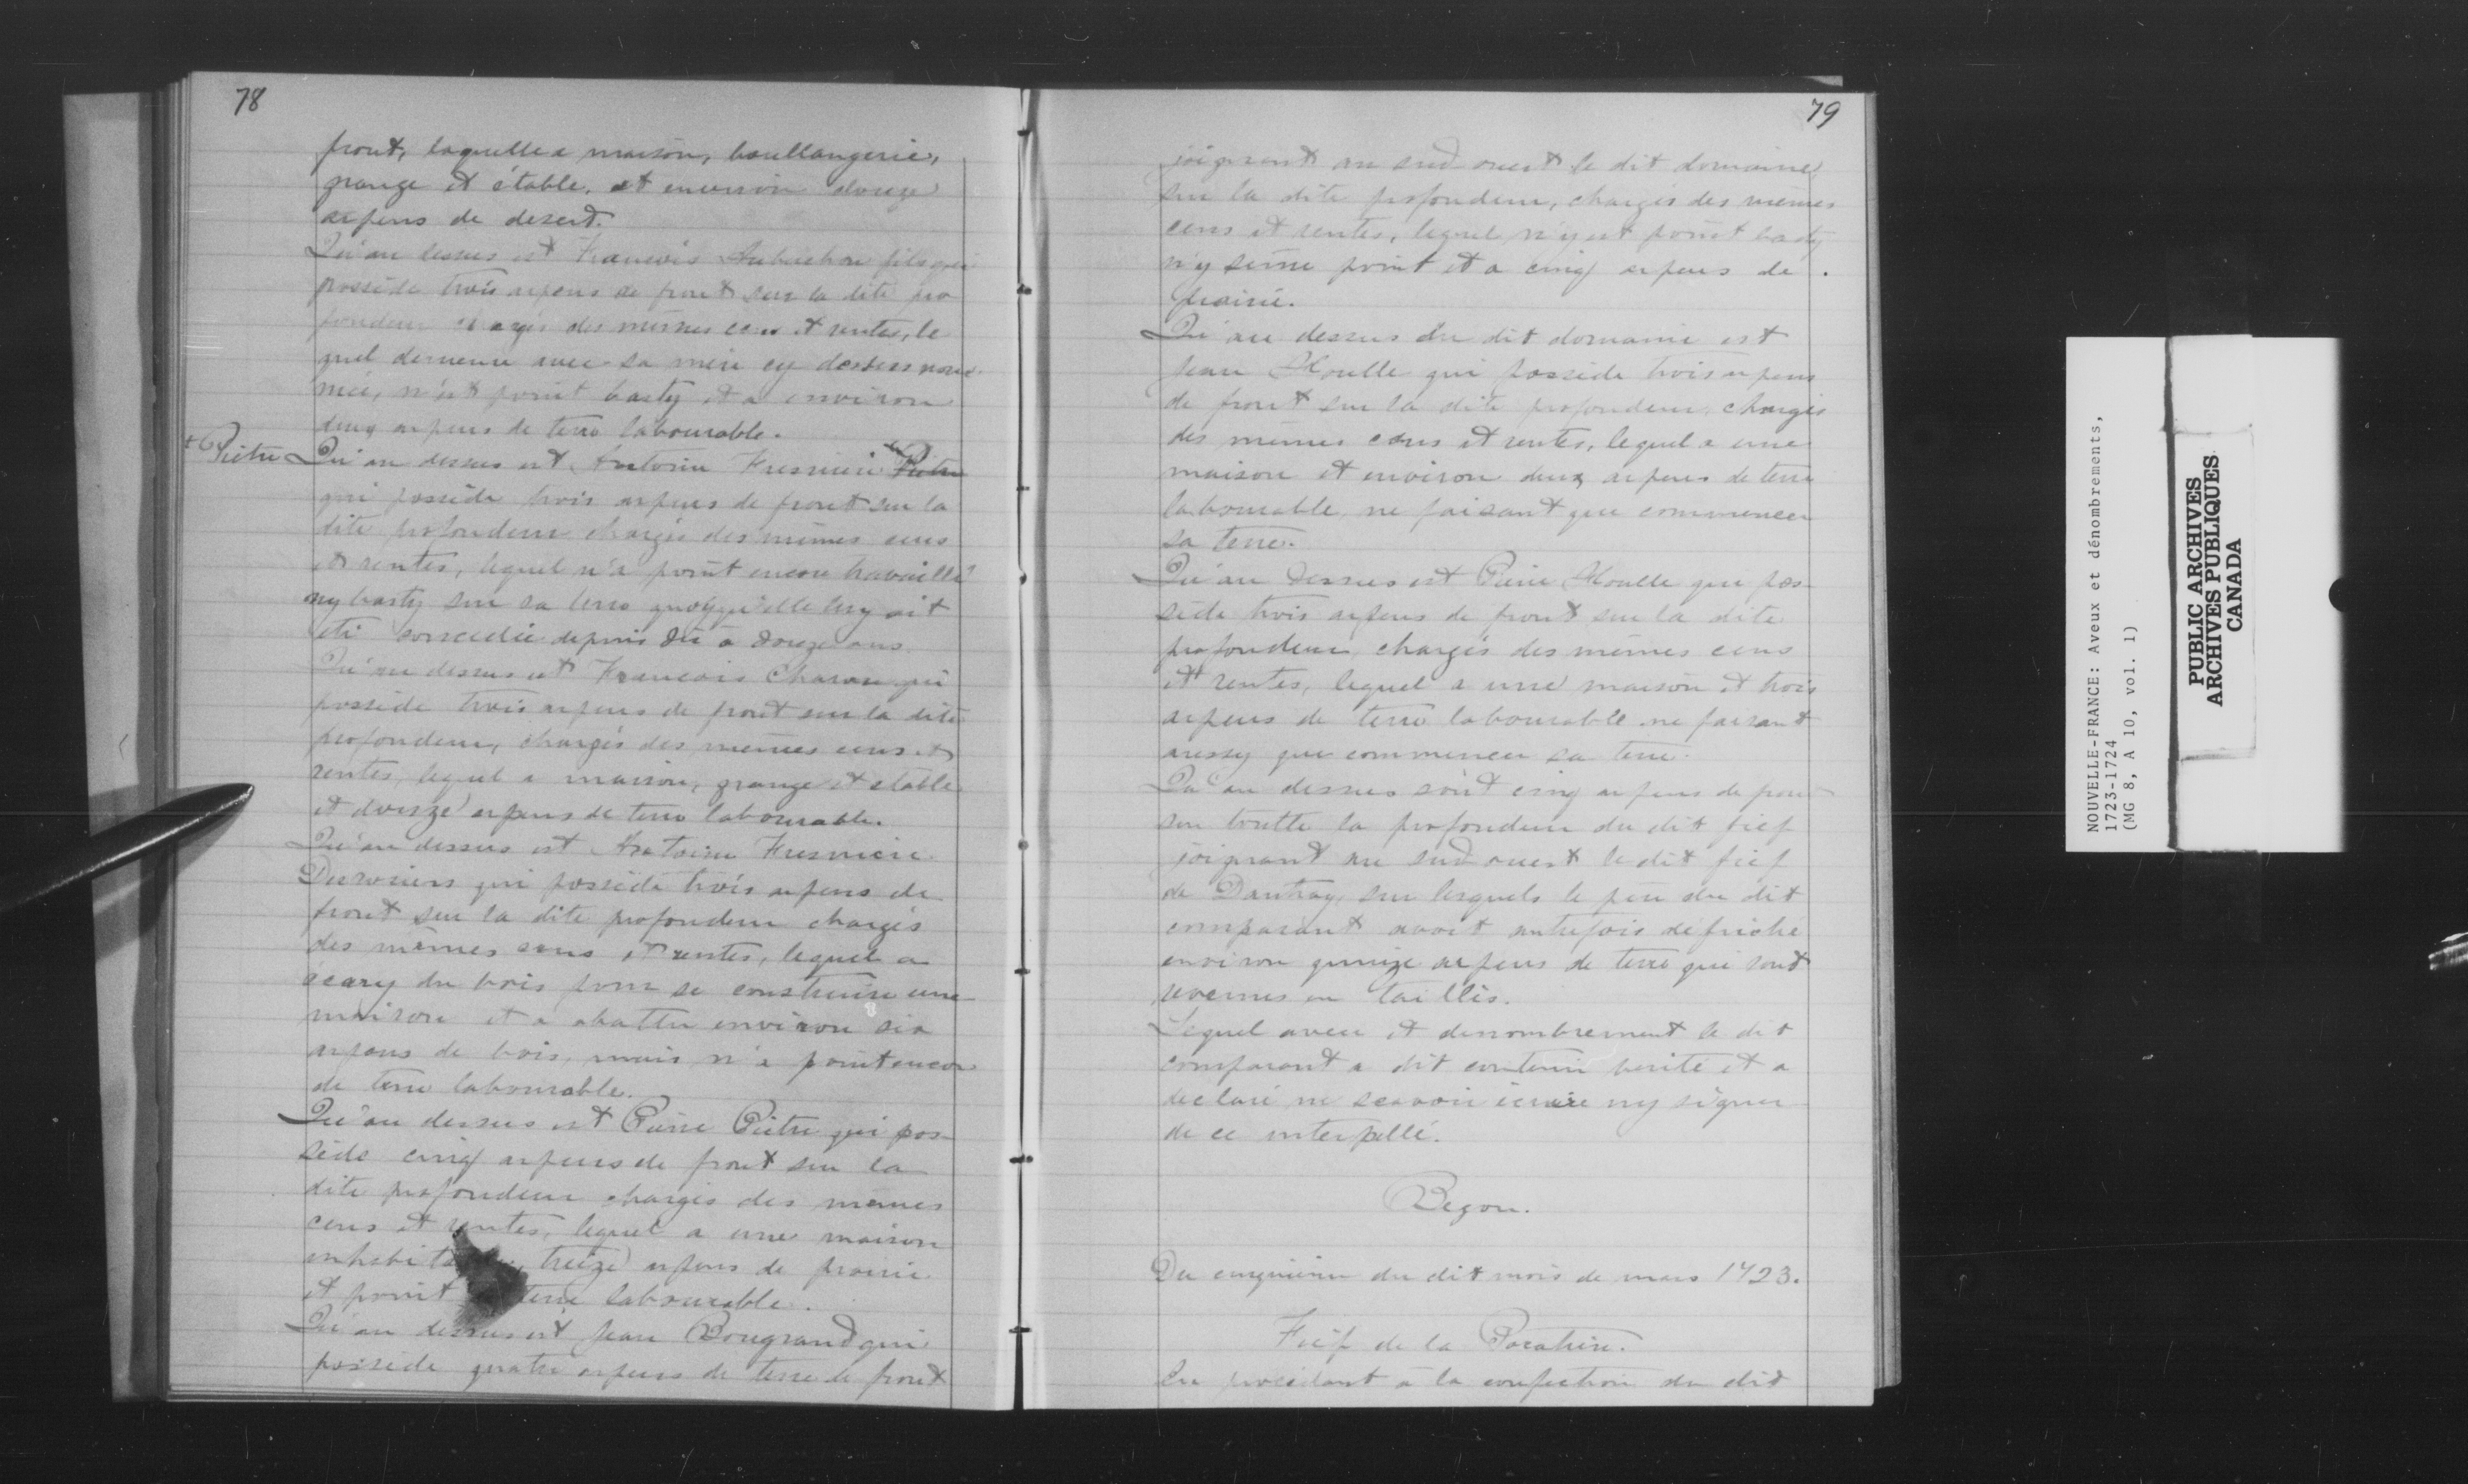 78
front, laquelle a maison, boullangerie,
grange et étable, et environ douze
arpens de desert.
Qu'au dessus est Francois Aubuchon fils qui
possède trois arpens de front sur la dite pro
fondeur chargés des mêmes cens et rentes, le
quel demeure avec sa mère cy dessus nom
mée, n'est point basty et a environ
deux arpens de terre labourable.
+ Pietre
Qu'au dessus est Antoine Fresnière Pietre
qui possède trois arpens de front sur la
dite profondeur chargés des mêmes cens
et rentes, lequel n'a point encore travaillé
ny basty sur sa terre quoyqu'elle luy ait
été concedée depuis dix à douze ans.
Qu'au dessus est Francois Charon qui
possède trois arpens de front sur la dite
profondeur, chargés des mêmes cens et
rentes, lequel a maison, grange et etable
et douze arpens de terre labourable.
Qu'au dessus est Antoine Fresnière
Durosiers qui possède trois arpens de
front sur la dite profondeur chargés
des mêmes cens et rentes, lequel a
écary du bois pour se construire une
maison et a abattu environ six
arpens de bois, mais n'a point encor
de terre labourable.
Qu'au dessus est Pierre Pietre qui pos-
sède cinq arpens de front sur la
dite profondeur chargés des mêmes
cens et rentes, lequel a une maison
treize arpens de prairie
et point terre labourable.
Qu'au dessus est Jean Bougrand qui
possède quatre arpens de terre de front
79
joignant au sud ouest le dit domaine
sur la dite profondeur, chargés des mêmes
cens et rentes, lequel n'y est point basty
n'y sème point et a cinq arpens de
prairie.
Qu'au dessus du dit domaine est
Jean Houlle qui possède trois arpens
de front sur la dite profondeur chargés
des mêmes cens et rentes, lequel a une
maison et environ deux arpens de terre
labourable ne faisant que commencer
sa terre.
Qu'au dessus est Pierre Houlle qui pos-
sède trois arpens de front sur la dite
profondeur, chargés des mêmes cens
et rentes, lequel a une maison et trois
arpens de terre labourable ne faisant
aussy que commencer sa terre.
Qu'au dessus sont cinq arpens de front
sur toutte la profondeur du dit fief
joignant au sud ouest le dit fief
de Dautray, sur lesquels le père du dit
comparant avoit autrefois défriché
environ quinze arpens de terre qui sont
revenus en taillis.
Lequel aveu et denombrement le dit
comparant a dit contenir verité et a
declaré ne scavoir écrire ny signer
de ce interpellé.
Begon.
Du cinquième du dit mois de mars 1723.
Fief de la Pocatière.
En procédant à la confection du dit
NOUVELLE-FRANCE: Aveux et dénombrements,
1723-1724
(MG 8, A 10, vol. 1)
PUBLIC ARCHIVES
ARCHIVES PUBLIQUES
CANADA